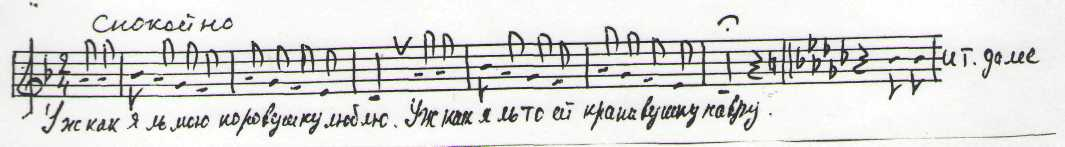 Спокойно
и т. далее
Уж как я ль мою коровушку люблю. Уж как я ль то ей крапивушку нарву.